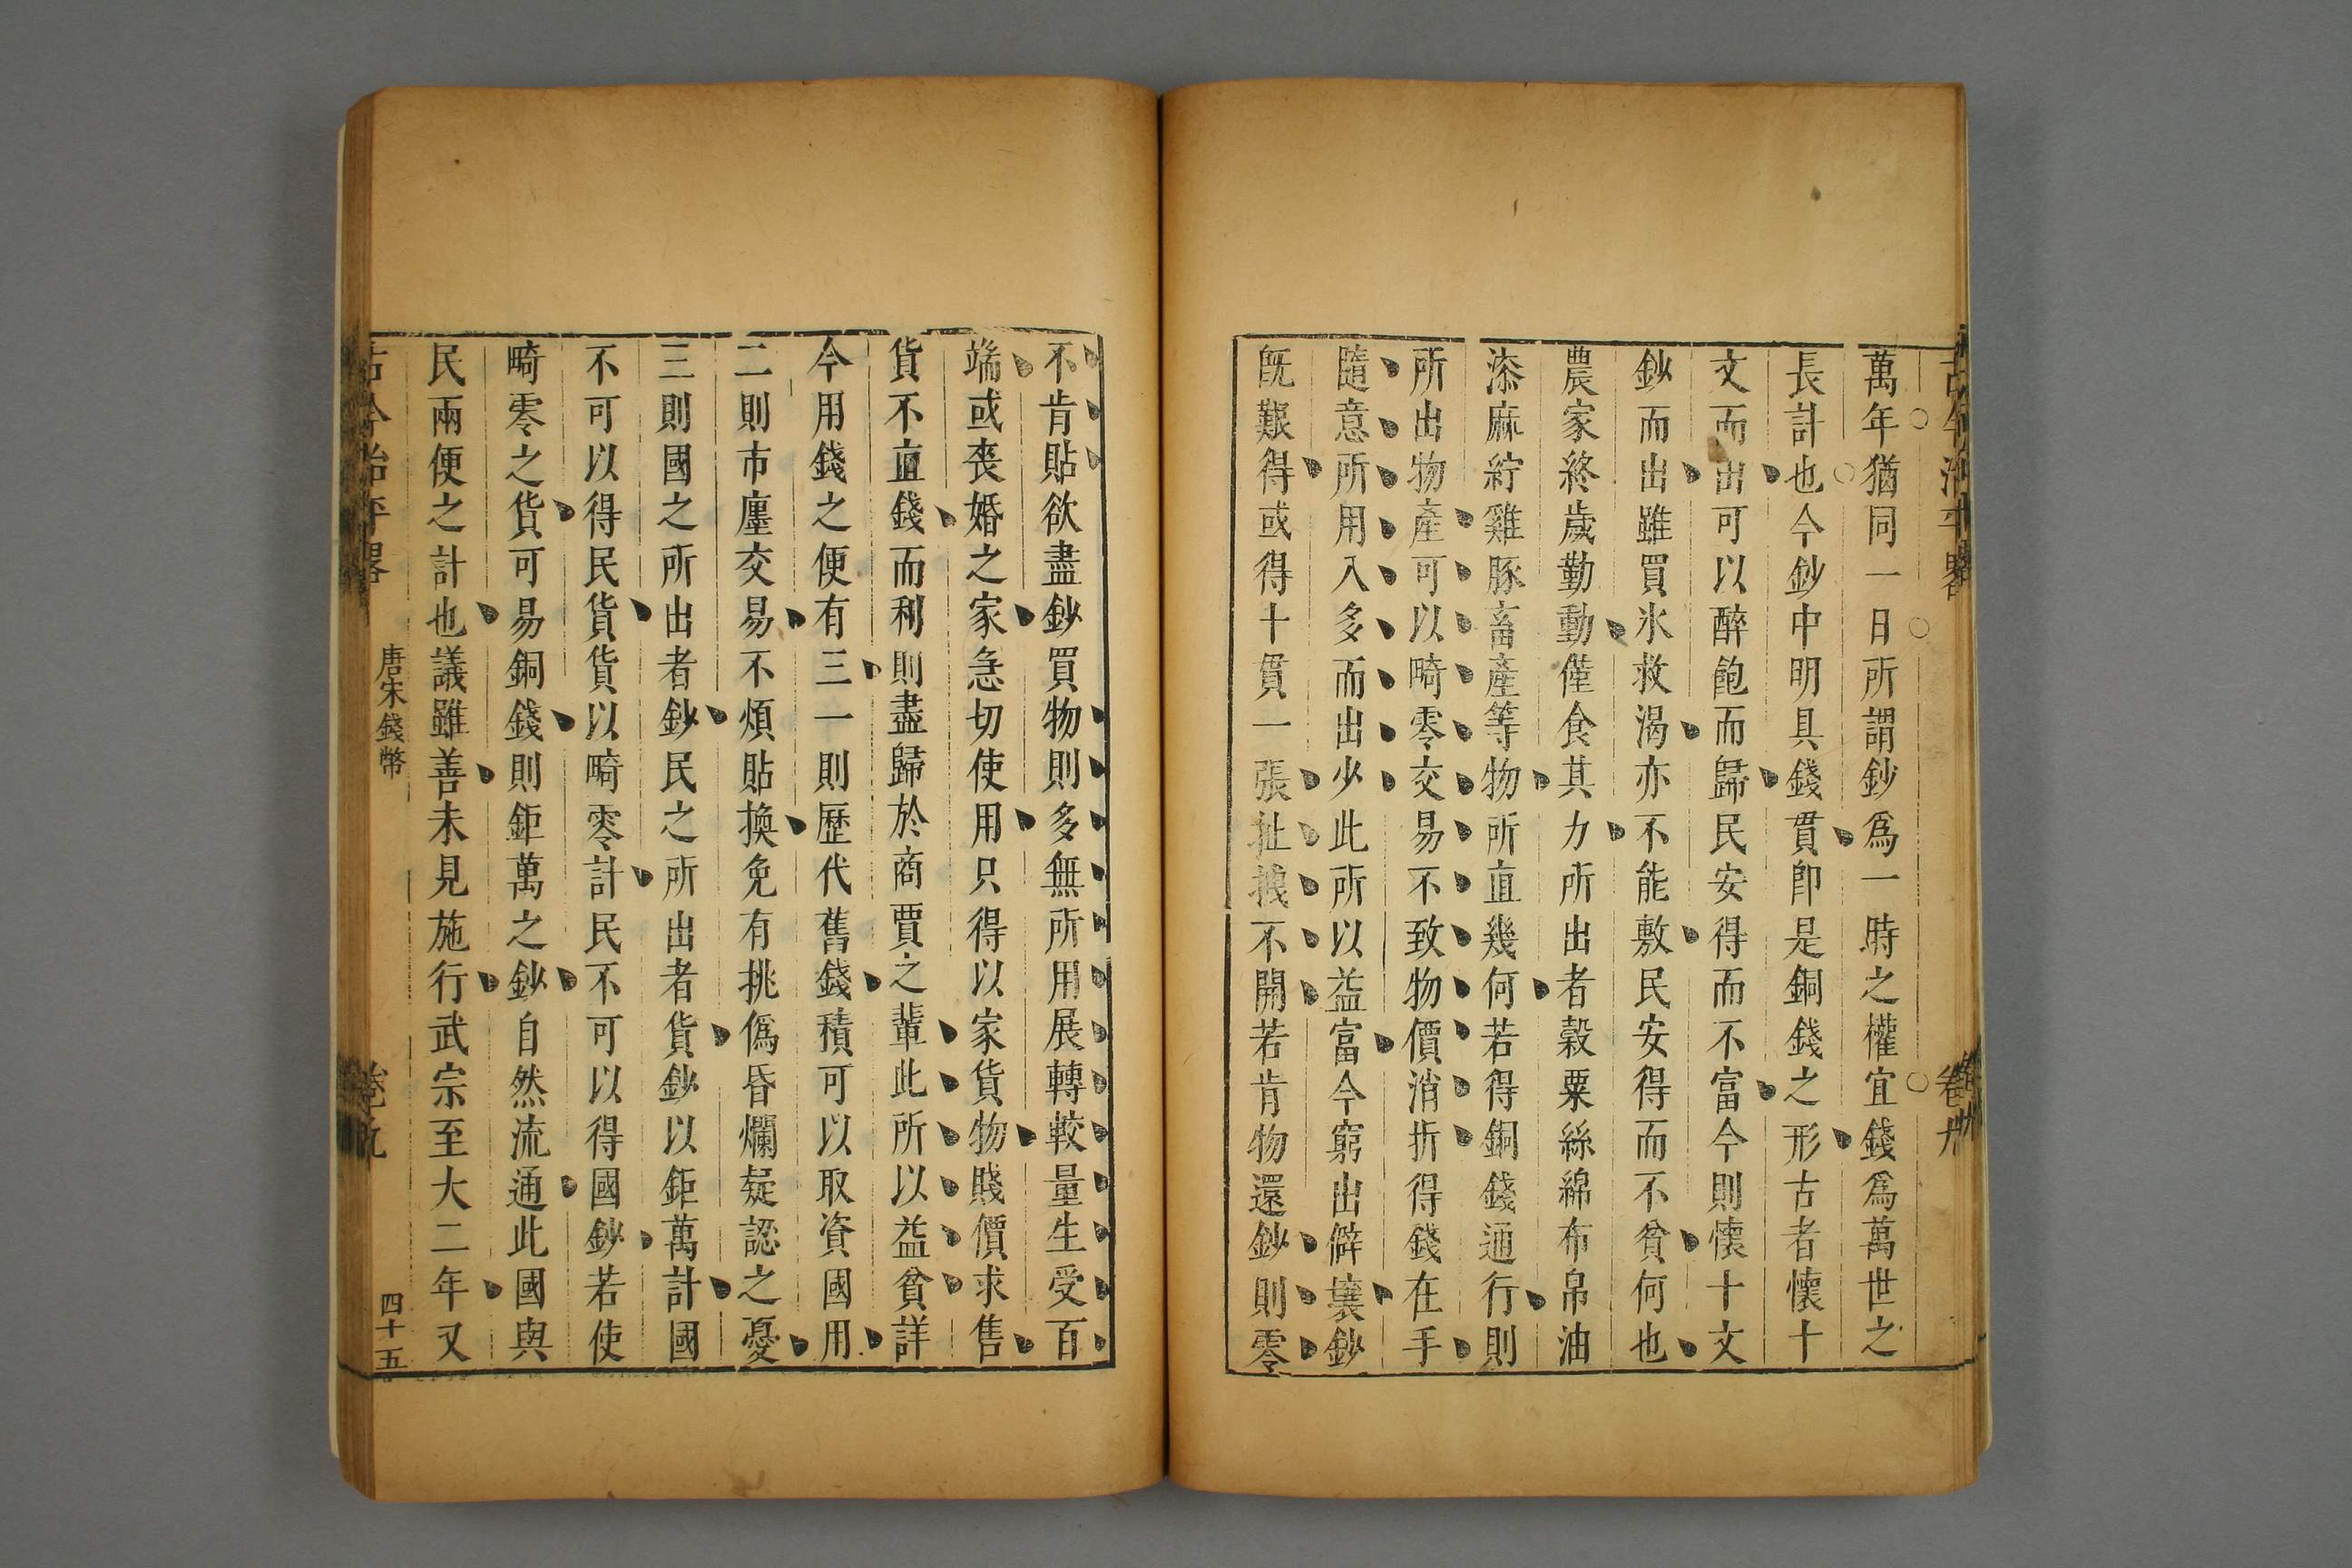 古今治平畧
卷九
萬年猶同一日所謂鈔爲一時之權宜錢爲萬世之
長計也今鈔中明具錢貫卽是銅錢之形古者懷十
文而出可以醉飽而歸民安得而不富今則懷十文
鈔而出雖買氷救渴亦不能敷民安得而不貧何也
農家終歲勤動僅食其力所出者穀粟絲綿布帛油
漆麻紵雞豚畜產等物所直幾何若得銅錢通行則
所出物產可以畸零交易不致物價消折得錢在手
隨意所用入多而出少此所以益富今窮出僻壤鈔
旣艱得或得十貫一張扯拽不開若肯物還鈔則零
不肯貼欲盡鈔買物則多無所用展轉較量生受百
端或丧婚之家急切使用只得以家貨物賤價求售
貨不直錢而利則盡歸於商賈之輩此所以益貧詳
今用錢之便有三一則歷代舊錢積可以取資國用
二則市廛交易不煩貼換免有挑僞昏爛疑認之憂
三則國之所出者鈔民之所出者貨鈔以鉅萬計國
不可以得民貨貨以畸零計民不可以得國鈔若使
畸零之貨可易銅錢則鉅萬之鈔自然流通此國與
民兩便之計也議雖善未見施行武宗至大二年又
古今治平畧
唐宋錢幣
卷九
四十五